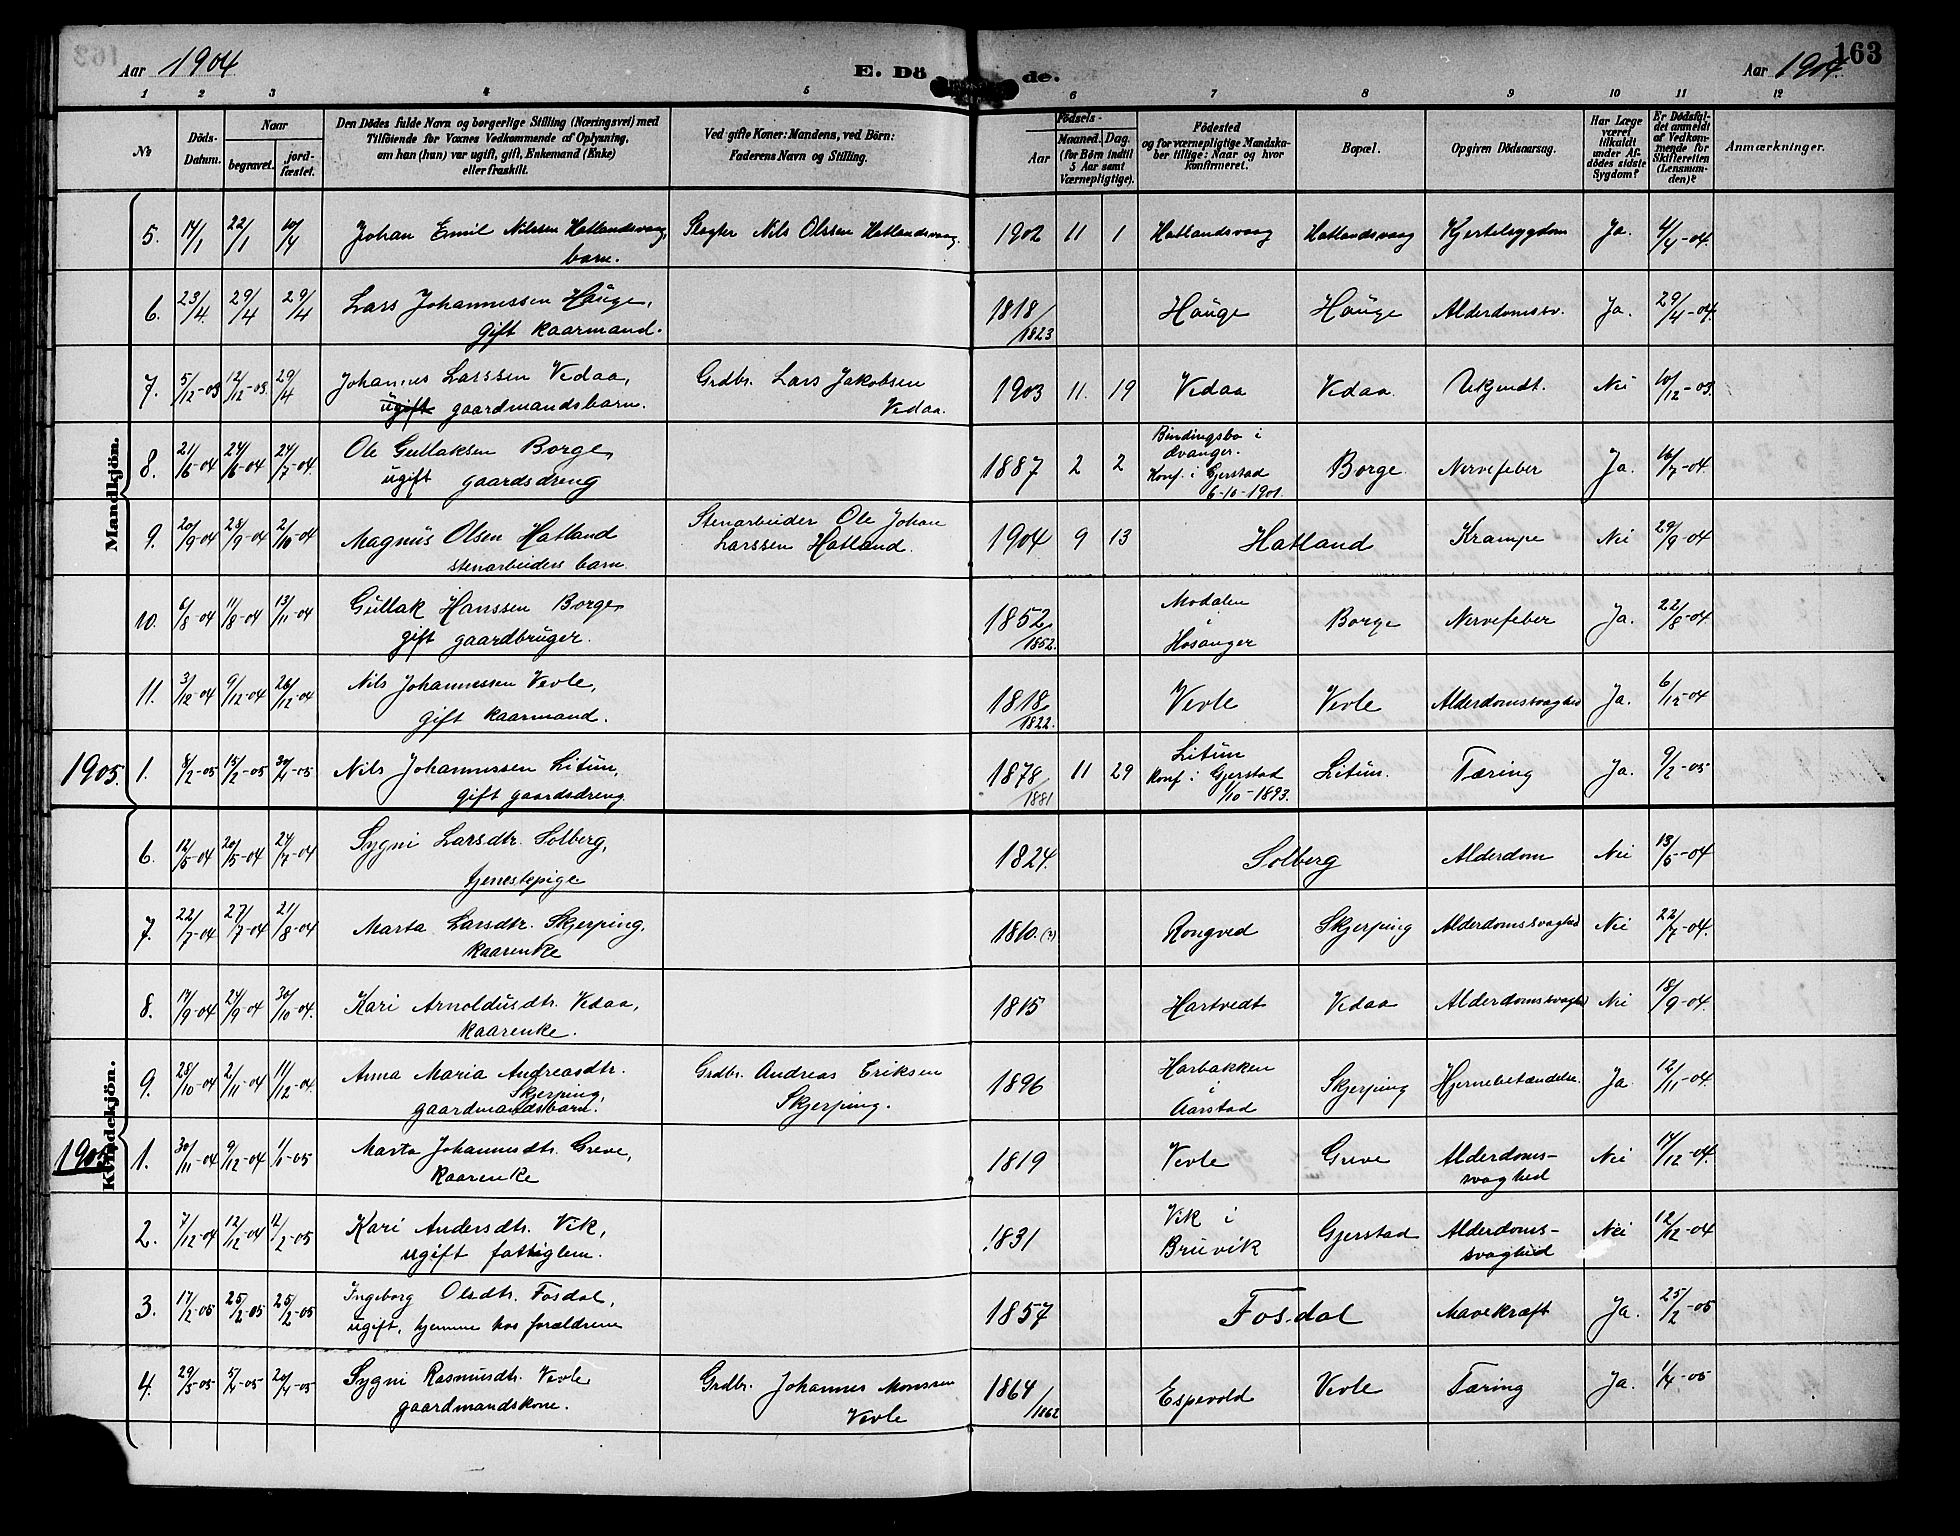 Aar 1904 E. Dö de. Aar 1904. 163
1 2 3 4 5 6 7 8 9 10 11 12
№
Döds-
Datum.
Naar
begravet.
jord-
fæstet.
Den Dödes fulde Navn og borgerlige Stilling (Næringsvei) med
Tilföiende for Voxnes Vedkommende af Oplysning,
om han (hun) var ugift, gift, Enkemand (Enke)
eller fraskilt.
Ved gifte Koner: Mandens, ved Börn:
Faderens Navn og Stilling.
Födsels-
Aar
Maaned. Dag.
(for Börn indtil
5 Aar samt
Værnepligtige).
Födested
og for værnepligtige Mandska-
ber tillige: Naar og hvor
konfirmeret.
Bopæl.
Opgiven Dödsaarsag.
Har Læge
været
tilkaldt
under Af-
dödes sidste
Sygdom?
Er Dödsfal-
det anmeldt
af Vedkom-
mende for
Skifteretten
(Lensman-
den)?
Anmærkninger.
Mandkjön.
5. 17/1 22/1 10/4 Johan Emil Nilssen Hatlandsvaag, Slagter Nils Olssen Hatlandsvaag. 1902 11 1 Hatlandsvaag Hatlandsvaag Kjertelsygdom Ja. 4/4-04.
barn.
6. 23/4. 29/4 29/4 Lars Johannessen Hauge, 1818/1823 Hauge Hauge Alderdomssv. Ja. 29/4-04.
gift kaarmand.
7. 5/12-03 12/12-03. 29/4 Johannes Larssen Vedaa, Grdbr. Lars Jakobsen 1903 11. 19 Vedaa Vedaa. Ukjendt. Nei 10/12-03.
ugift gaardmandsbarn. Vedaa.
8. 21/6-04 24/6-04 24/7-04. Ole Gullaksen Borge, 1887 2 2 Bindingsbø i
Evanger.
Konf. i Gjerstad
6-10-1901. Borge Nervefeber Ja. 16/7-04.
ugift gaardsdreng
9. 20/9-04 28/9-04 2/10-04 Magnus Olsen Hatland Stenarbeider Ole Johan
Larssen Hatland. 1904 9 13 Hatland Krampe Nei 29/9-04
stenarbeiders barn.
10. 6/8-04 11/8-04 13/11-04 Gullak Hanssen Borge, 1852/1852. Modalen
Hosanger Borge Nervefeber Ja. 22/8-04
gift gaardbruger.
11. 3/12-04 9/12-04 26/12-04 Nils Johannessen Vevle, 1818/1822. Vevle Vevle Alderdomssvaghed Ja. 6/12-04
gift kaarmand.
1905. 1. 8/2-05 15/2-05 30/4-05 Nils Johannessen Litun, 1878/1881 11 29 Litun
Konf. i Gjerstad
1/10-1893. Litun. Tæring Ja. 9/2-05
gift gaardsdreng.
Kvindekjön.
6. 12/5-04 20/5-04 24/7-04 Sygni Larsdtr. Solberg, 1824. Solberg Alderdom Nei 13/5-04
tjenestepige
7. 22/7-04 27/7-04 21/8-04 Marta Larsdtr. Skjerping, 1810.(?) Rongved Skjerping Alderdomssvaghed Nei 22/7-04.
kaarenke
8. 17/9-04 24/9-04 30/10-04. Kari Arnoldusdtr. Vedaa, 1815 Hartvedt Vedaa Alderdomssvaghed Nei 18/9-04.
kaarenke.
9. 28/10-04 2/11-04 11/12-04. Anna Maria Andreasdtr.
Skjerping, Grdbr. Andreas Eriksen
Skjerping. 1896 Harbakken
i
Aarstad Skjerping Hjernebetændelse. Ja. 12/11-04
gaardmandsbarn.
1905 1. 30/11-04 9/12-04 1/1-05 Marta Johannesdtr. Greve, 1819 Vevle Greve Alderdoms-
svaghed Nei 17/12-04.
kaarenke
2. 7/12-04 12/12-04 12/2-05 Kari Andersdtr. Vik, 1831 Vik i
Bruvik Gjerstad Alderdoms-
svaghed Nei 12/12-04
ugift fattiglem.
3. 17/2-05 25/2-05 25/2-05 Ingeborg Olsdtr. Fosdal, 1857 Fosdal Mavekræft Ja. 25/2-05
ugift, hjemme hos forældrene
4. 29/3-05 5/4-05 20/4-05 Sygni Rasmusdtr. Vevle Grdbr. Johannes Monssen
Vevle 1864/1862 Espevold Vevle Tæring Ja. 1/4-05
gaardmandskone.